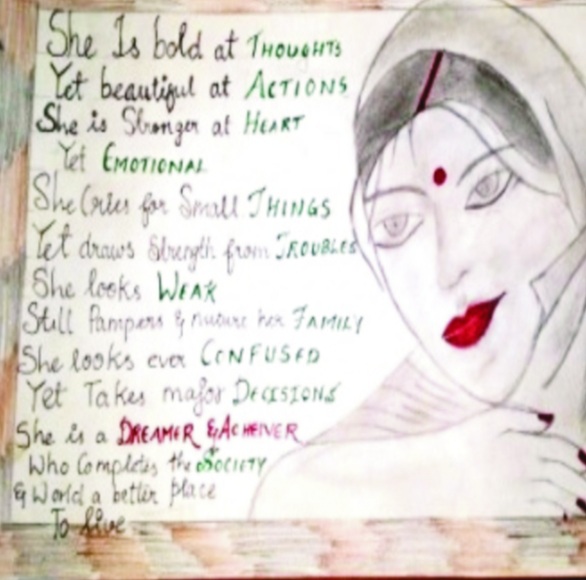 She Is bold at THOUGHTS
Yet beautiful at ACTIONS
She is Stronger at HEART
Yet EMOTIONAL
She Cries for Small THINGS
Yet draws Strength from TROUBLES
She looks WEAK
Still Pampers & nuture her FAMILY
She looks ever CONFUSED
Yet Takes major DECISIONS
She is a DREAMER & ACHEIVER
Who Completes the SOCIETY
& World a better place
To live